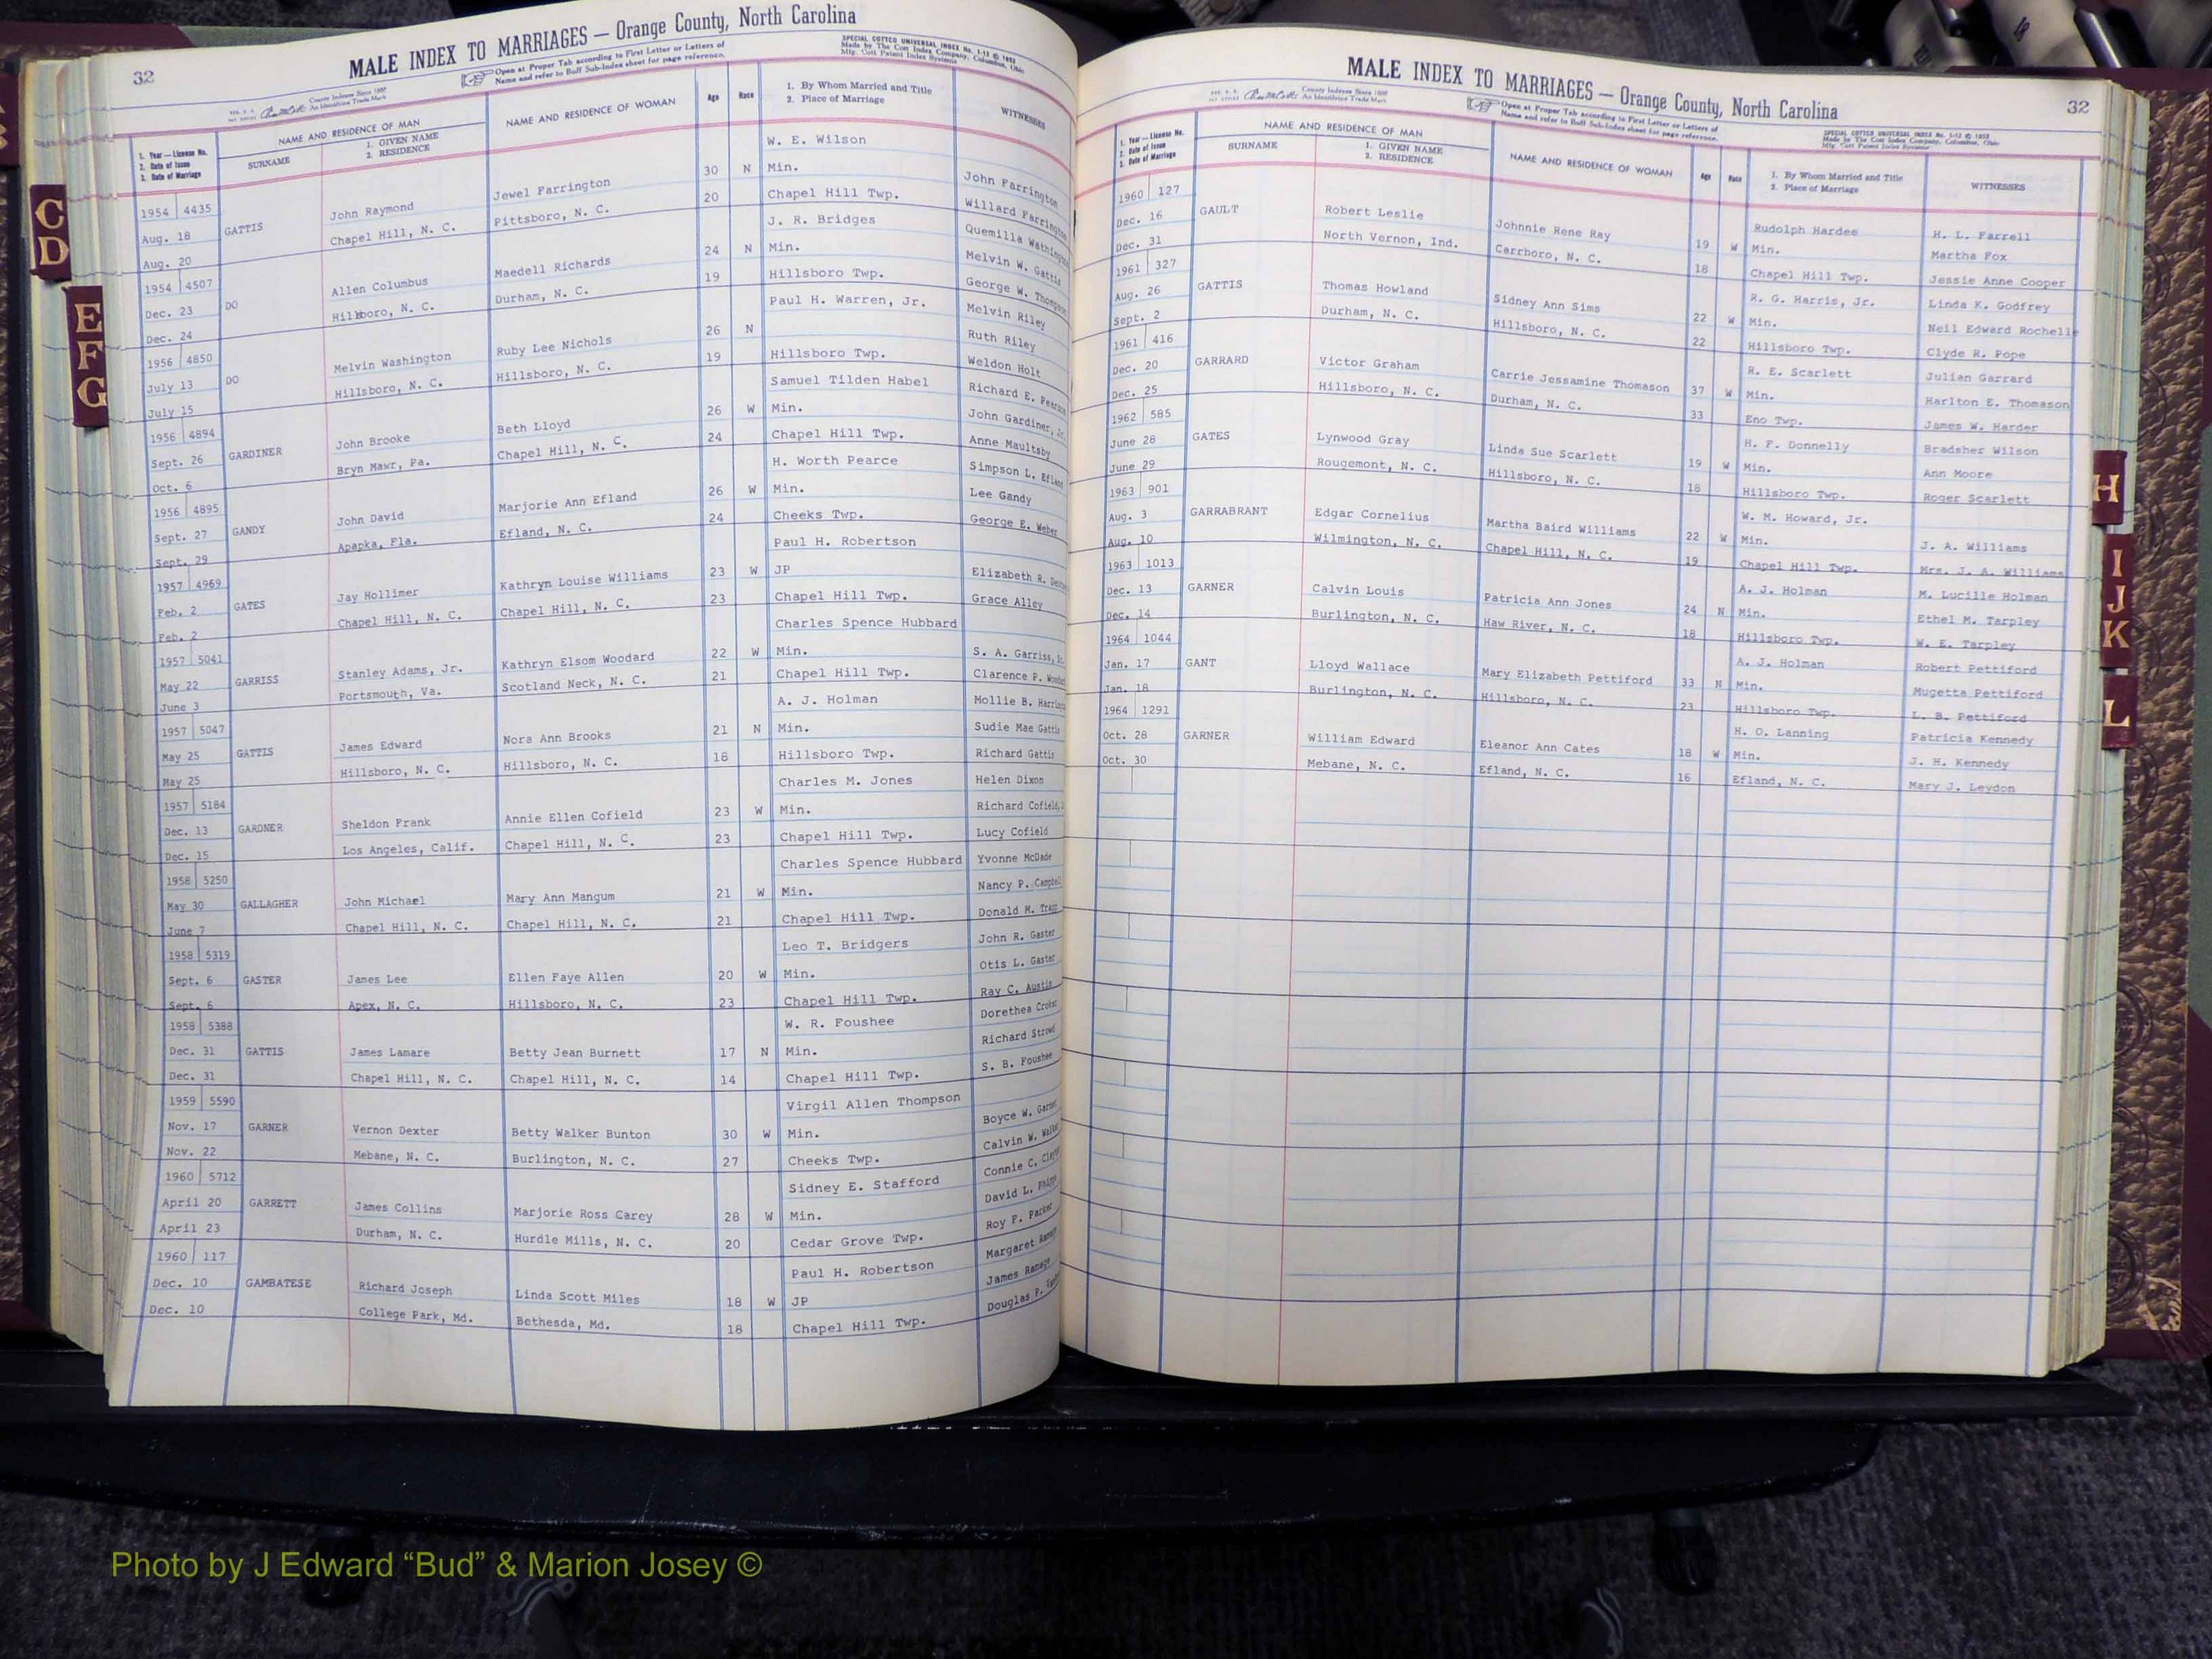 C
D
E
F
G
32
MALE INDEX TO MARRIAGES — Orange County, North Carolina
Open at Proper Tab according to First Letter or Letters of
Name and refer to Buff Sub-Index sheet for page reference.
SPECIAL COTTCO UNIVERSAL INDEX No. 1-12 © 1952
Made by The Cott Index Company, Columbus, Ohio
1. Year — License No.
2. Date of Issue
3. Date of Marriage
NAME AND RESIDENCE OF MAN
SURNAME
1. GIVEN NAME
2. RESIDENCE
NAME AND RESIDENCE OF WOMAN
Age
Race
1. By Whom Married and Title
2. Place of Marriage
WITNESSES
W. E. Wilson
1954 4435 John Raymond Jewel Farrington 30 N Min. John Farrington
Aug. 18 GATTIS Chapel Hill, N. C. Pittsboro, N. C. 20 Chapel Hill Twp. Willard Farrington
Aug. 20 J. R. Bridges Quemilla
1954 4507 Allen Columbus Maedell Richards 24 N Min. Melvin W. Gattis
Dec. 23 DO Hillsboro, N. C. Durham, N. C. 19 Hillsboro Twp. George W.
Dec. 24 Paul H. Warren, Jr. Melvin Riley
1956 4850 Melvin Washington Ruby Lee Nichols 26 N Ruth Riley
July 13 DO Hillsboro, N. C. Hillsboro, N. C. 19 Hillsboro Twp. Weldon Holt
July 15 Samuel Tilden Habel Richard E.
1956 4894 John Brooke Beth Lloyd 26 W Min. John Gardiner, Jr.
Sept. 26 GARDINER Bryn Mawr, Pa. Chapel Hill, N. C. 24 Chapel Hill Twp. Anne Maultsby
Oct. 6 H. Worth Pearce Simpson L. Efland
1956 4895 John David Marjorie Ann Efland 26 W Min. Lee Gandy
Sept. 27 GANDY Apapka, Fla. Efland, N. C. 24 Cheeks Twp. George E. Weber
Sept. 29 Paul H. Robertson
1957 4969 Jay Hollimer Kathryn Louise Williams 23 W JP Elizabeth R.
Feb. 2 GATES Chapel Hill, N. C. Chapel Hill, N. C. 23 Chapel Hill Twp. Grace Alley
Feb. 2 Charles Spence Hubbard
1957 5041 Stanley Adams, Jr. Kathryn Elsom Woodard 22 W Min. S. A. Garriss,
May 22 GARRISS Portsmouth, Va. Scotland Neck, N. C. 21 Chapel Hill Twp. Clarence P.
June 3 A. J. Holman Mollie B.
1957 5047 James Edward Nora Ann Brooks 21 N Min. Sudie Mae Gattis
May 25 GATTIS Hillsboro, N. C. Hillsboro, N. C. 18 Hillsboro Twp. Richard Gattis
May 25 Charles M. Jones Helen Dixon
1957 5184 Sheldon Frank Annie Ellen Cofield 23 W Min. Richard Cofield,
Dec. 13 GARDNER Los Angeles, Calif. Chapel Hill, N. C. 23 Chapel Hill Twp. Lucy Cofield
Dec. 15 Charles Spence Hubbard Yvonne McDade
1958 5250 John Michael Mary Ann Mangum 21 W Min. Nancy P. Campbell
May 30 GALLAGHER Chapel Hill, N. C. Chapel Hill, N. C. 21 Chapel Hill Twp. Donald M.
June 7 Leo T. Bridgers John R. Gaster
1958 5319 James Lee Ellen Faye Allen 20 W Min. Otis L. Gaster
Sept. 6 GASTER Apex, N. C. Hillsboro, N. C. 23 Chapel Hill Twp. Ray C. Austin
Sept. 6 W. R. Foushee Dorethea
1958 5388 James Lamare Betty Jean Burnett 17 N Min. Richard Strowd
Dec. 31 GATTIS Chapel Hill, N. C. Chapel Hill, N. C. 14 Chapel Hill Twp. S. B. Foushee
Dec. 31 Virgil Allen Thompson
1959 5590 Vernon Dexter Betty Walker Bunton 30 W Min. Boyce W. Garner
Nov. 17 GARNER Mebane, N. C. Burlington, N. C. 27 Cheeks Twp. Calvin W.
Nov. 22 Sidney E. Stafford Connie C.
1960 5712 James Collins Marjorie Ross Carey 28 W Min. David L.
April 20 GARRETT Durham, N. C. Hurdle Mills, N. C. 20 Cedar Grove Twp. Roy F. Parker
April 23 Paul H. Robertson Margaret
1960 117 Richard Joseph Linda Scott Miles 18 W JP James Ramage
Dec. 10 GAMBATESE College Park, Md. Bethesda, Md. 18 Chapel Hill Twp. Douglas P.
Dec. 10
MALE INDEX TO MARRIAGES — Orange County, North Carolina
32
Open at Proper Tab according to First Letter or Letters of
Name and refer to Buff Sub-Index sheet for page reference.
SPECIAL COTTCO UNIVERSAL INDEX No. 1-12 © 1952
Made by The Cott Index Company, Columbus, Ohio
1. Year — License No.
2. Date of Issue
3. Date of Marriage
NAME AND RESIDENCE OF MAN
SURNAME
1. GIVEN NAME
2. RESIDENCE
NAME AND RESIDENCE OF WOMAN
Age
Race
1. By Whom Married and Title
2. Place of Marriage
WITNESSES
1960 127 Rudolph Hardee H. L. Farrell
Dec. 16 GAULT Robert Leslie Johnnie Rene Ray 19 W Min. Martha Fox
Dec. 31 North Vernon, Ind. Carrboro, N. C. 18 Chapel Hill Twp. Jessie Anne Cooper
1961 327 R. G. Harris, Jr. Linda K. Godfrey
Aug. 26 GATTIS Thomas Howland Sidney Ann Sims 22 W Min. Neil Edward Rochelle
Sept. 2 Durham, N. C. Hillsboro, N. C. 22 Hillsboro Twp. Clyde R. Pope
1961 416 R. E. Scarlett Julian Garrard
Dec. 20 GARRARD Victor Graham Carrie Jessamine Thomason 37 W Min. Harlton E. Thomason
Dec. 25 Hillsboro, N. C. Durham, N. C. 33 Eno Twp. James W. Harder
1962 585 H. F. Donnelly Bradsher Wilson
June 28 GATES Lynwood Gray Linda Sue Scarlett 19 W Min. Ann Moore
June 29 Rougemont, N. C. Hillsboro, N. C. 18 Hillsboro Twp. Roger Scarlett
1963 901 W. M. Howard, Jr.
Aug. 3 GARRABRANT Edgar Cornelius Martha Baird Williams 22 W Min. J. A. Williams
Aug. 10 Wilmington, N. C. Chapel Hill, N. C. 19 Chapel Hill Twp. Mrs. J. A. Williams
1963 1013 A. J. Holman M. Lucille Holman
Dec. 13 GARNER Calvin Louis Patricia Ann Jones 24 N Min. Ethel M. Tarpley
Dec. 14 Burlington, N. C. Haw River, N. C. 18 Hillsboro Twp. W. E. Tarpley
1964 1044 A. J. Holman Robert Pettiford
Jan. 17 GANT Lloyd Wallace Mary Elizabeth Pettiford 33 N Min. Mugetta Pettiford
Jan. 18 Burlington, N. C. Hillsboro, N. C. 23 Hillsboro Twp. L. B. Pettiford
1964 1291 H. O. Lanning Patricia Kennedy
Oct. 28 GARNER William Edward Eleanor Ann Cates 18 W Min. J. H. Kennedy
Oct. 30 Mebane, N. C. Efland, N. C. 16 Efland, N. C. Mary J. Leydon
H
I
J
K
L
Photo by J Edward “Bud” & Marion Josey ©